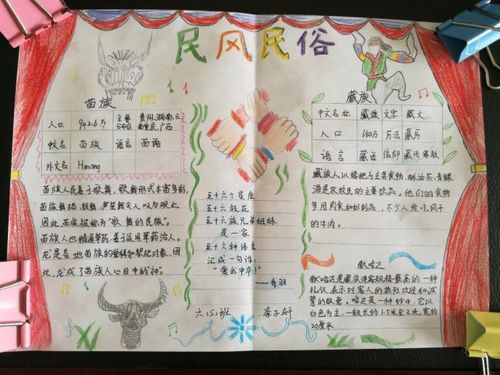 民风民俗
苗族
人口
942.6万
主要
分布
贵州、湖南、云
南、重庆、广西
帐名
苗族
语言
苗语
外文名
Hmong
苗族人民善于歌舞，歌舞形式丰富多彩，
因此苗族被称为“歌舞的民族”。
苗族人也精通草药，善于运用草药治人。
五十六个星座
五十六枝花
五十六族兄弟姐妹
是一家
五十六种语言
汇成一句话
“爱我中华！”
六(5)班
李子轩
藏族
中文名称
藏族
文字
藏文
人口
历法
藏历
语言
藏语
信仰
藏传佛教
藏族人以糌粑为主要食物，酥油茶、青稞
酒是农牧民的主要饮品。他们的食物
多用肉食和奶制品，不少人爱吃风干
的牛肉。
献哈达
献哈达是藏族待客规格最高的一种
礼仪，表示对客人的热烈欢迎和诚
挚的敬意。哈达是一种纱巾，它以
白色为主，一般长约1.5米至2米，宽约
20厘米